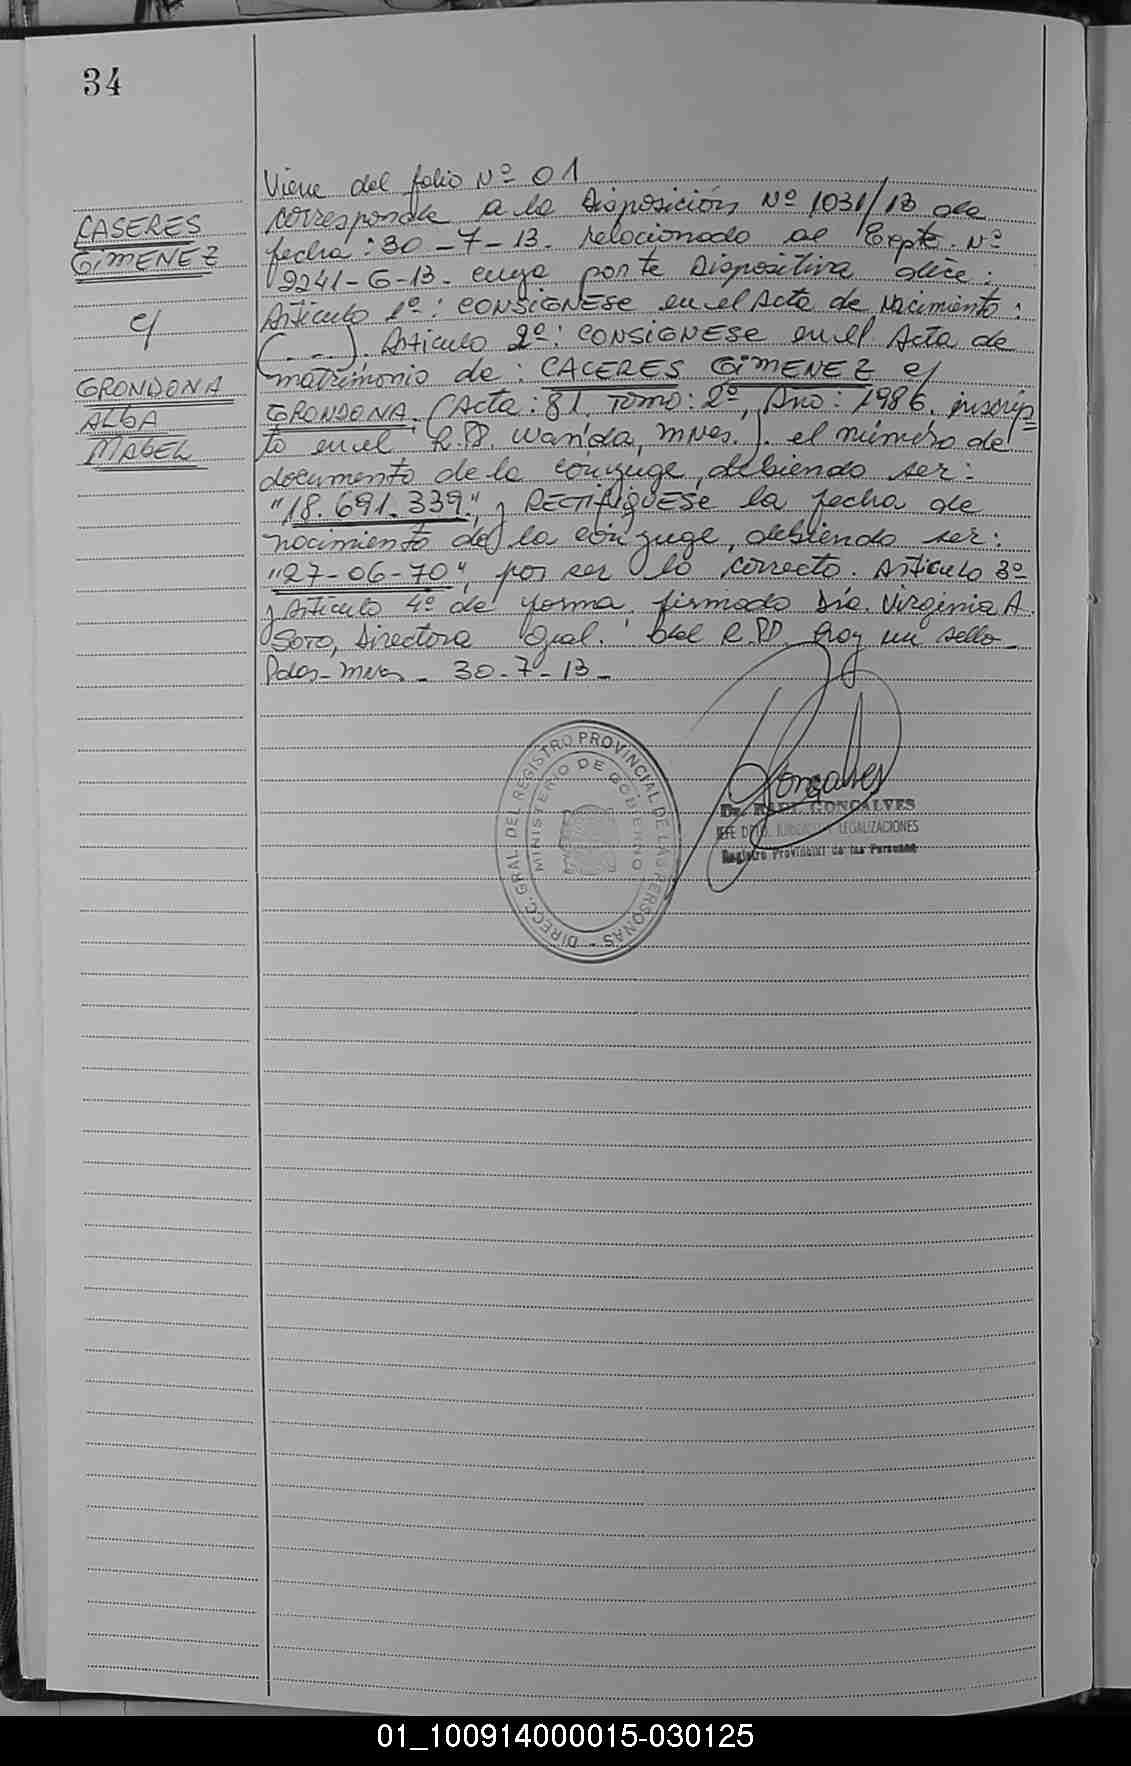 34
CASERES
GIMENEZ
c/
GRONDONA
ALBA
MABEL
Viene del folio Nº 01
corresponde a la Disposición Nº 1031/13 de
fecha: 30-7-13. relacionado al Expte. Nº
2241-G-13. cuya parte Dispositiva dice:
Artículo 1º: CONSIGNESE en el Acta de Nacimiento:
(...). Artículo 2º: CONSIGNESE en el Acta de
matrimonio de: CACERES GIMENEZ c/
GRONDONA. (Acta: 81, Tomo: 2º, Año: 1986. inscrip=
to en el R.PP. Wanda, Mnes.). el número de
documento de la cónyuge, debiendo ser:
"18.691.339", y RECTIFIQUESE la fecha de
nacimiento de la cónyuge, debiendo ser:
"27-06-70", por ser lo correcto. Artículo 3º
y Artículo 4º de forma. firmado Dra. Virginia A.
Soto, Directora Gral. del R.PP. hay un sello_
Pdas-Mnes_ 30-7-13_
DIRECC. GRAL. DEL REGISTRO PROVINCIAL DE LAS PERSONAS -
MINISTERIO DE GOBIERNO
Gonçalves
GONÇALVES
JEFE DPTO. Y LEGALIZACIONES
Registro Provincial de las Personas
01_100914000015-030125